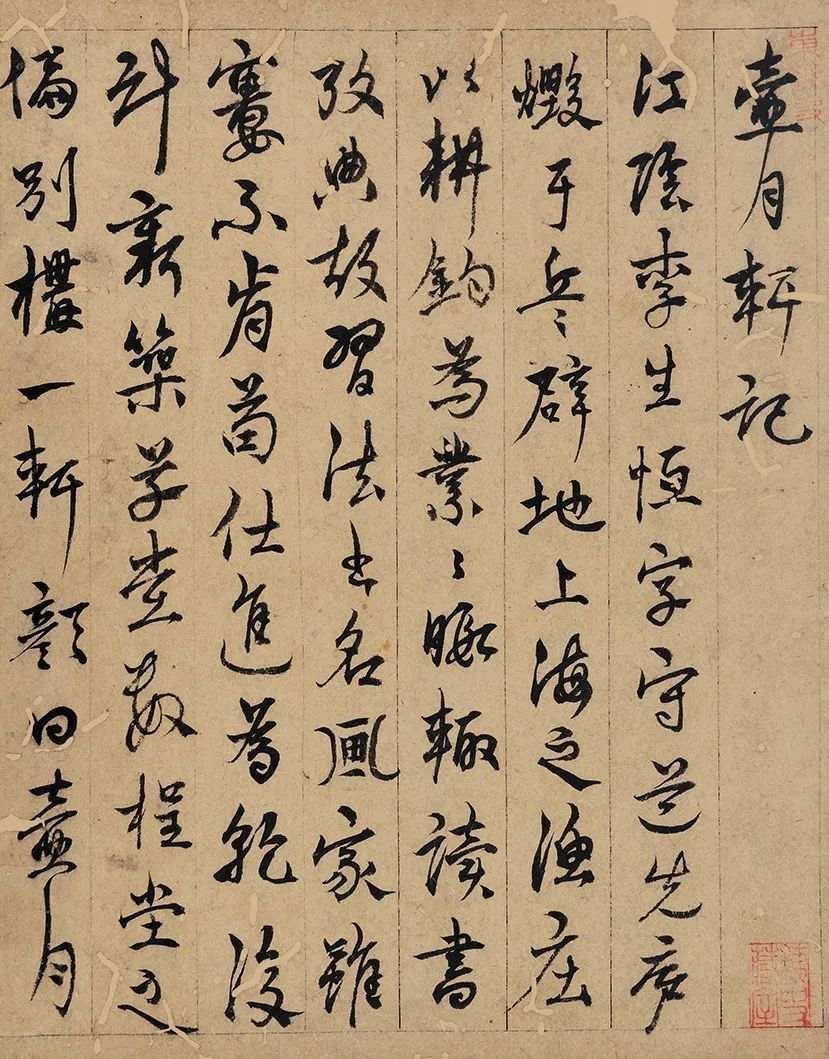 壷月軒記
江陰李生恒字守道先廬
燬于兵〻辟地上海之漁庄
以耕釣為業〻暇輙讀書
攷典故習法書名画家雖
寠不肯苟仕進為乾没
計新築草堂數楹堂之
偏别構一軒顏曰壷月